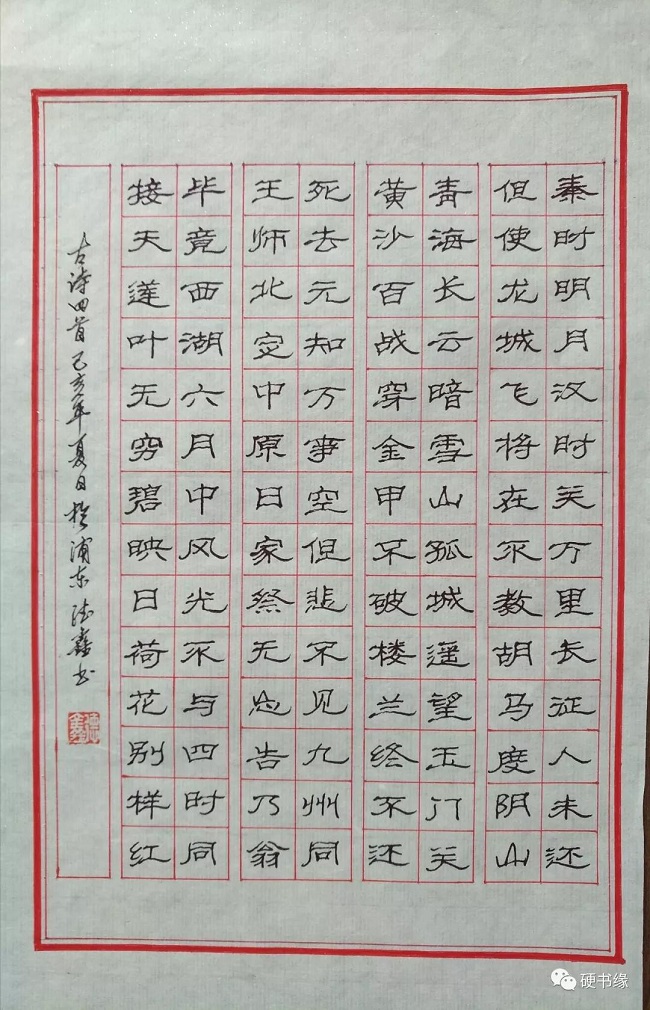 秦时明月汉时关万里长征人未还
但使龙城飞将在不教胡马度阴山
青海长云暗雪山孤城遥望玉门关
黄沙百战穿金甲不破楼兰终不还
死去元知万事空但悲不见九州同
王师北定中原日家祭无忘告乃翁
毕竟西湖六月中风光不与四时同
接天莲叶无穷碧映日荷花别样红
古诗四首己亥年夏日於浦东德鑫书
硬书缘